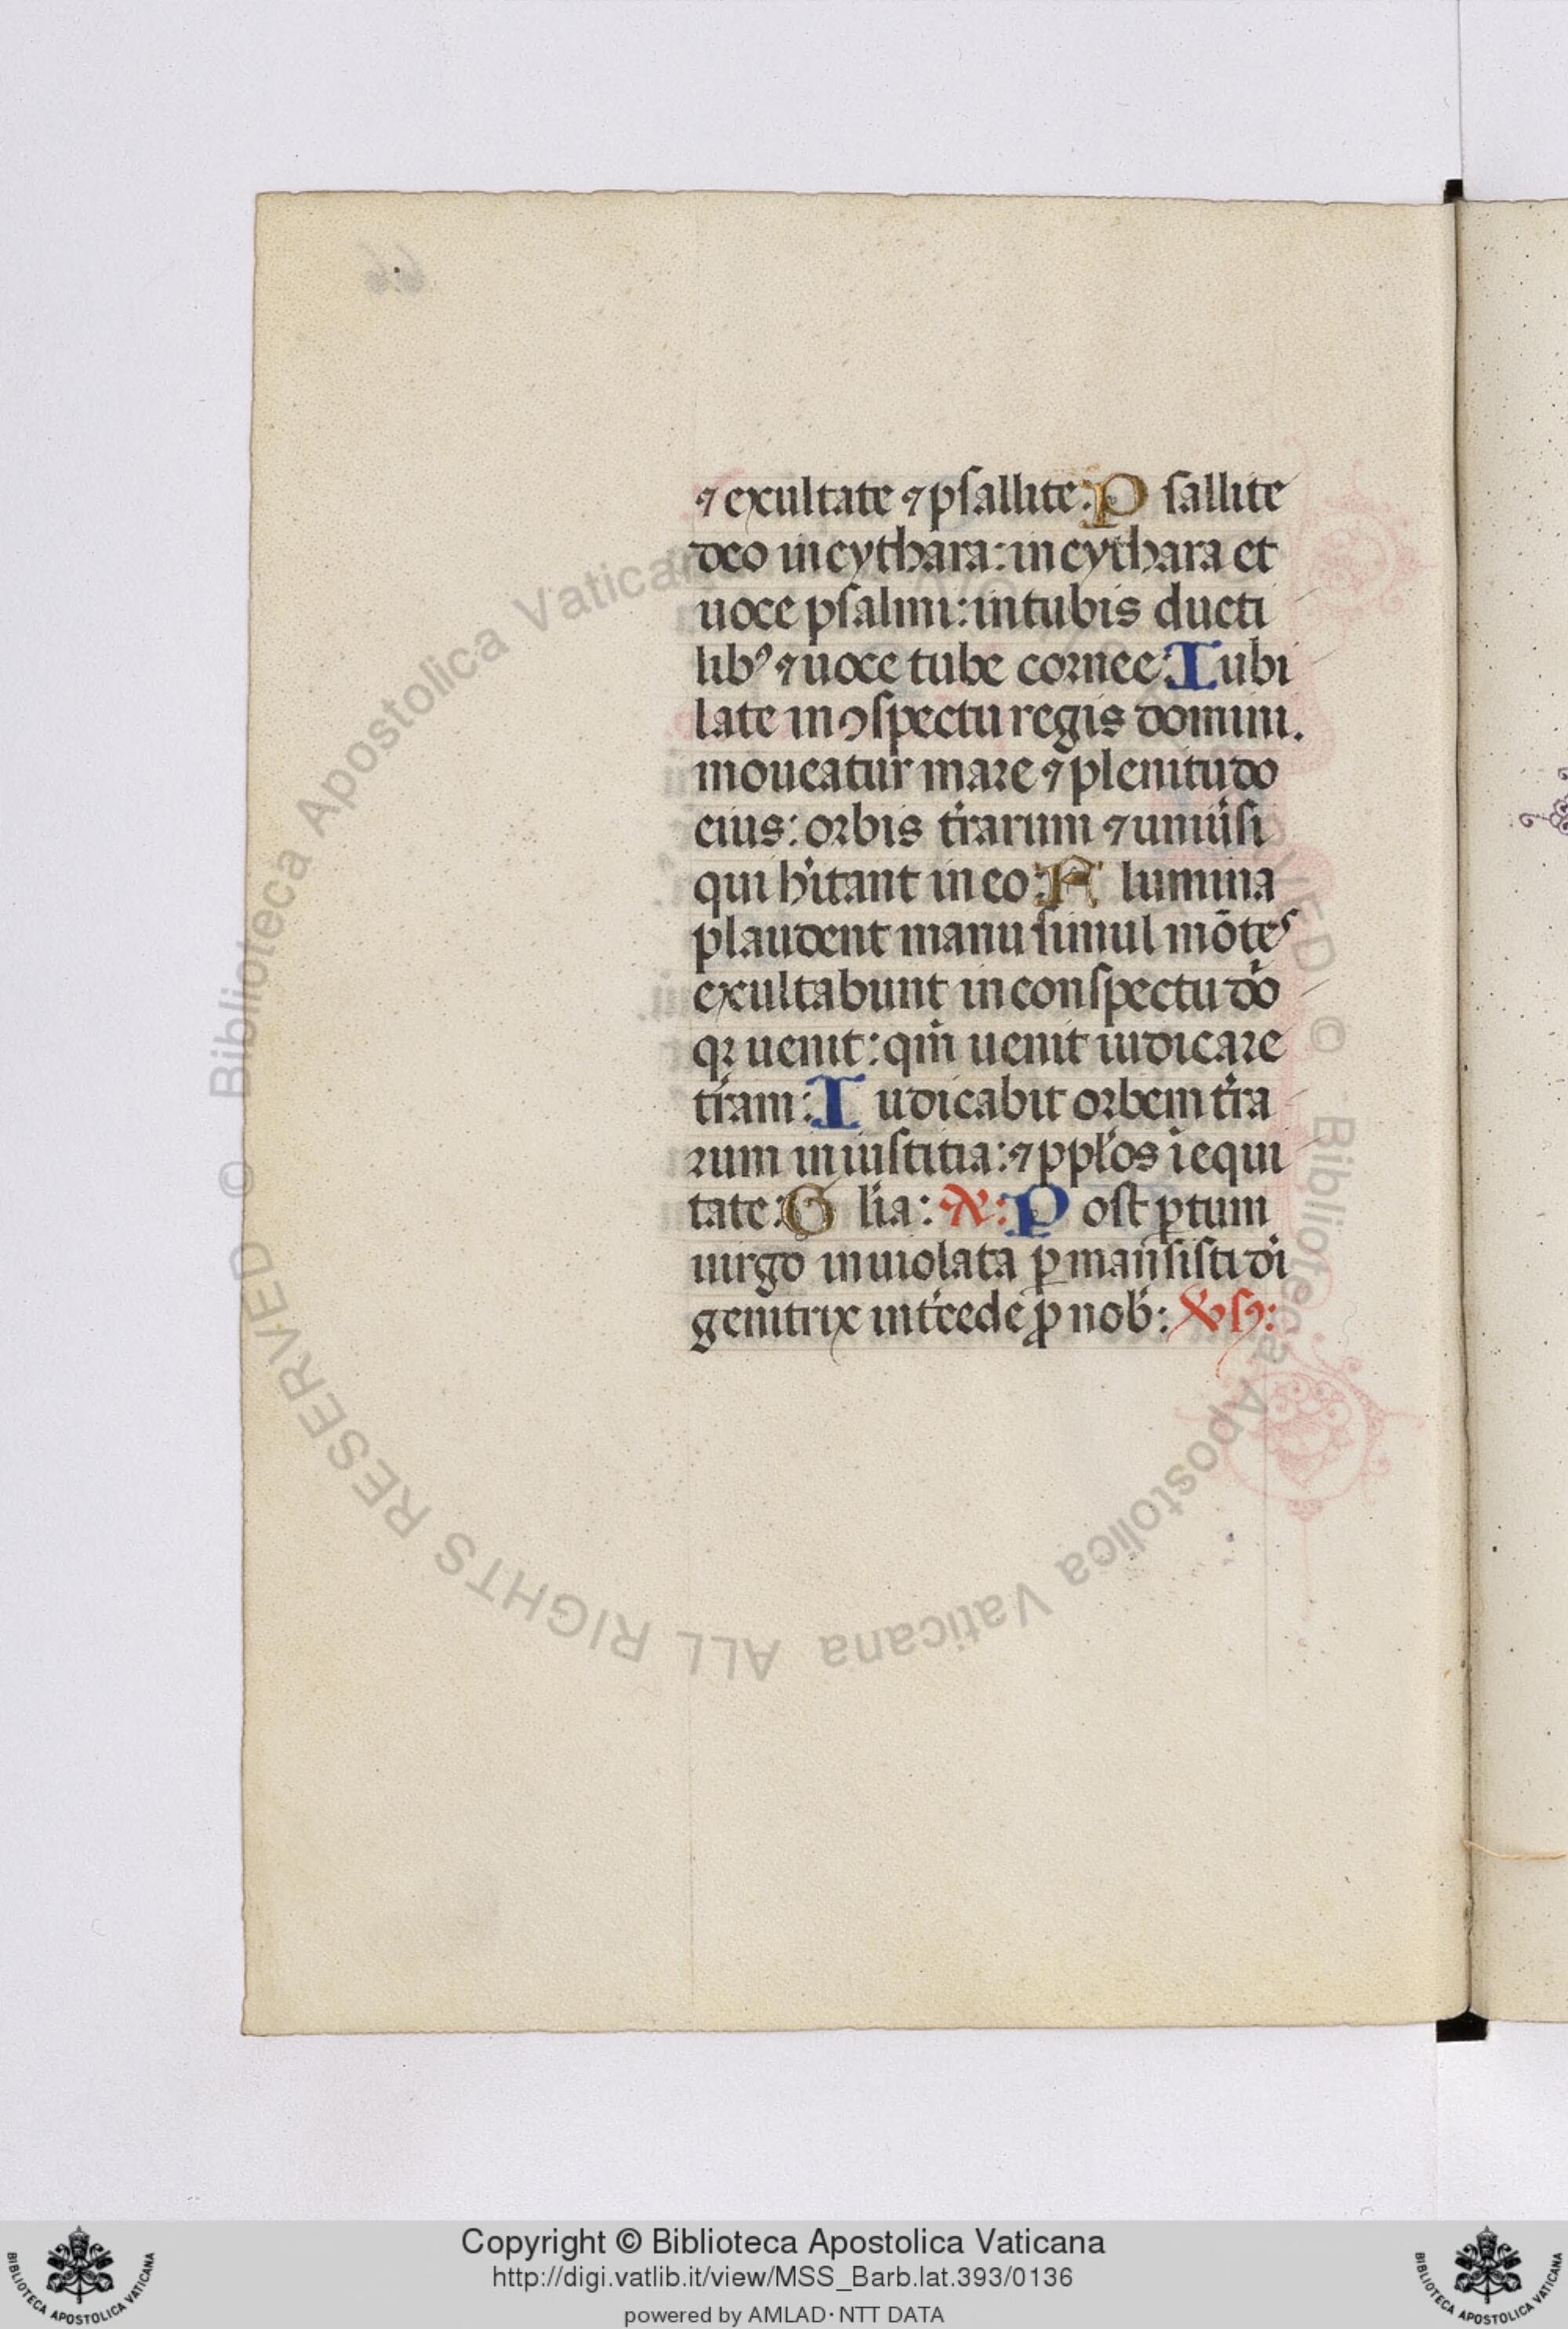 ⁊ exultate ⁊ psallite: Psallite
deo in cythara: in cythara et
uoce psalmi: in tubis ducti
libꝰ ⁊ uoce tube cornee: Iubi
late in ꝯspectu regis domini.
moueatur mare ⁊ plenitudo
eius: orbis t̓rarum ⁊ uniu̓si
qui h̓itant in eo: Flumina
plaudent manu simul mōtes
exultabunt in conspectu do̓
qꝛ uenit: qm̓ uenit iudicare
t̓ram: Iudicabit orbem t̓ra
rum in iustitia: ⁊ ppl̓os ī equi
tate: Gl̓ia: A: Post ꝑtum
uirgo inuiolata ꝑmansisti di̓
genitrix int̓cede ꝓ nob̓: Vs:
© Biblioteca Apostolica Vaticana
© Biblioteca Apostolica Vaticana ALL RIGHTS RESERVED
Copyright © Biblioteca Apostolica Vaticana
http://digi.vatlib.it/view/MSS_Barb.lat.393/0136
powered by AMLAD · NTT DATA
BIBLIOTECA APOSTOLICA VATICANA
BIBLIOTECA APOSTOLICA VATICANA